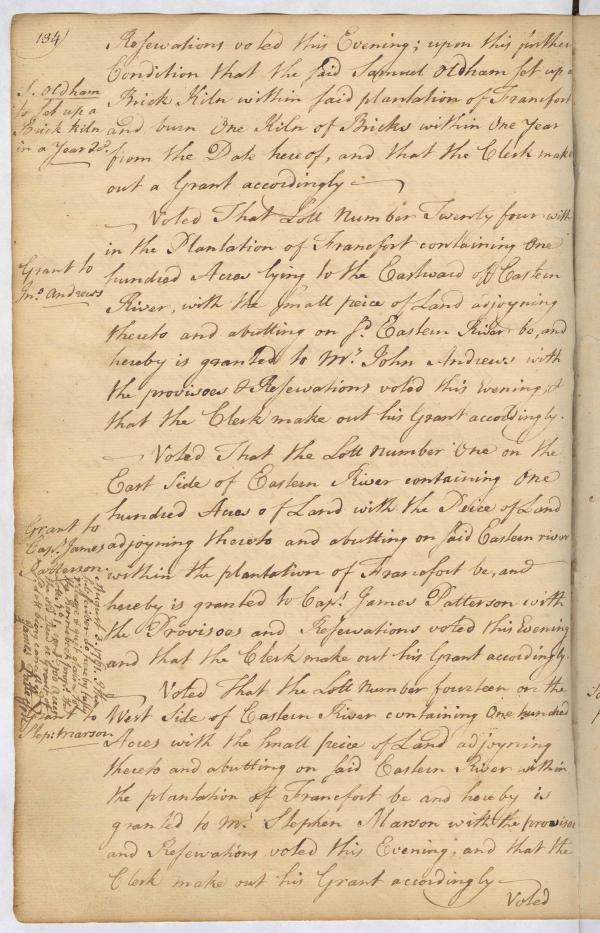 134
Reservations voted this Evening; upon this further
Condition that the said Samuel Oldham set up a
Brick Kiln within said plantation of Francfort
and burn One Kiln of Bricks within One Year
from the Date hereof, and that the Clerk make
out a Grant accordingly
S. Oldham
to set up a
Brick Kiln
in a Year &c.
Voted That Lott Number Twenty four with
in the Plantation of Francfort containing One
hundred Acres lying to the Eastward off Eastern
River, with the small peice of Land adjoyning
thereto and abutting on sd. Eastern River be, and
hereby is granted to Mr. John Andrews with
the provisoes & Reservations voted this Evening, &
that the Clerk make out his Grant accordingly.
Grant to
Jno. Andrews
Voted That the Lott Number One on the
East Side of Eastern River containing One
hundred Acres of Land with the Peice of Land
adjoyning thereto and abutting on said Eastern river
within the plantation of Francfort be, and
hereby is granted to Capt. James Patterson with
the Provisoes and Reservations voted this Evening
and that the Clerk make out his Grant accordingly.
Grant to
Capt. James
Patterson.
August 3 1761
James Patterson
Voted That the Lott Number fourteen on the
West Side of Eastern River containing One hundred
Acres with the small peice of Land adjoyning
thereto and abutting on said Eastern River within
the plantation of Francfort be and hereby is
granted to Mr. Stephen Marson with the provisoes
and Reservations voted this Evening, and that the
Clerk make out his Grant accordingly
Grant to
Step: Marson
Voted